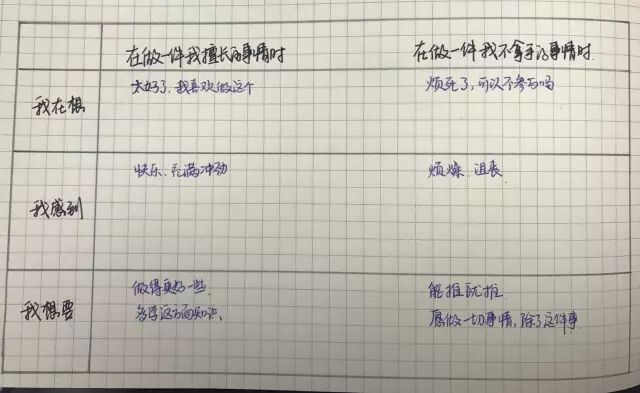 在做一件我擅长的事情时
在做一件我不拿手的事情时
我在想
太好了，我喜欢做这个
烦死了，可以不参与吗
我感到
快乐、充满冲动
烦燥、沮丧
我想要
做得更好一些
多学这方面知识、
能推就推
愿做一切事情，除了这件事